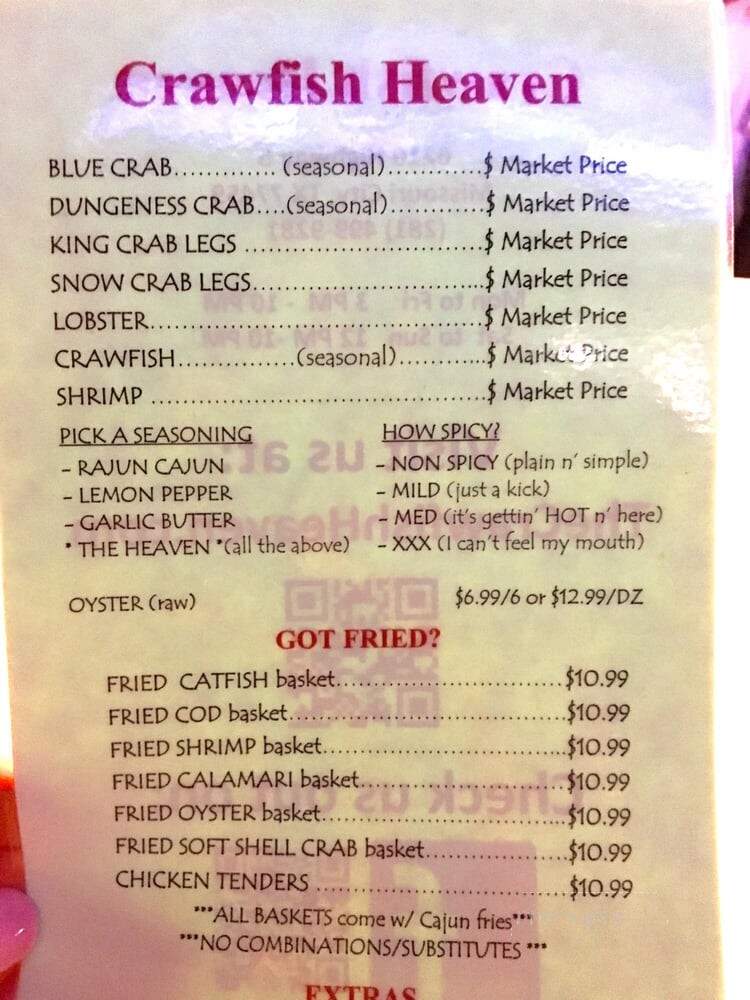 Crawfish Heaven
BLUE CRAB............. (seasonal)............$ Market Price
DUNGENESS CRAB....(seasonal)............$ Market Price
KING CRAB LEGS ..............................$ Market Price
SNOW CRAB LEGS..............................$ Market Price
LOBSTER..........................................$ Market Price
CRAWFISH...............(seasonal)...........$ Market Price
SHRIMP ..........................................$ Market Price
PICK A SEASONING HOW SPICY?
- RAJUN CAJUN - NON SPICY (plain n' simple)
- LEMON PEPPER - MILD (just a kick)
- GARLIC BUTTER - MED (it's gettin' HOT n' here)
* THE HEAVEN *(all the above) - XXX (I can't feel my mouth)
OYSTER (raw) $6.99/6 or $12.99/DZ
GOT FRIED?
FRIED CATFISH basket.............................$10.99
FRIED COD basket...................................$10.99
FRIED SHRIMP basket...............................$10.99
FRIED CALAMARI basket..........................$10.99
FRIED OYSTER basket...............................$10.99
FRIED SOFT SHELL CRAB basket..................$10.99
CHICKEN TENDERS ................................$10.99
***ALL BASKETS come w/ Cajun fries***
***NO COMBINATIONS/SUBSTITUTES ***
EXTRAS